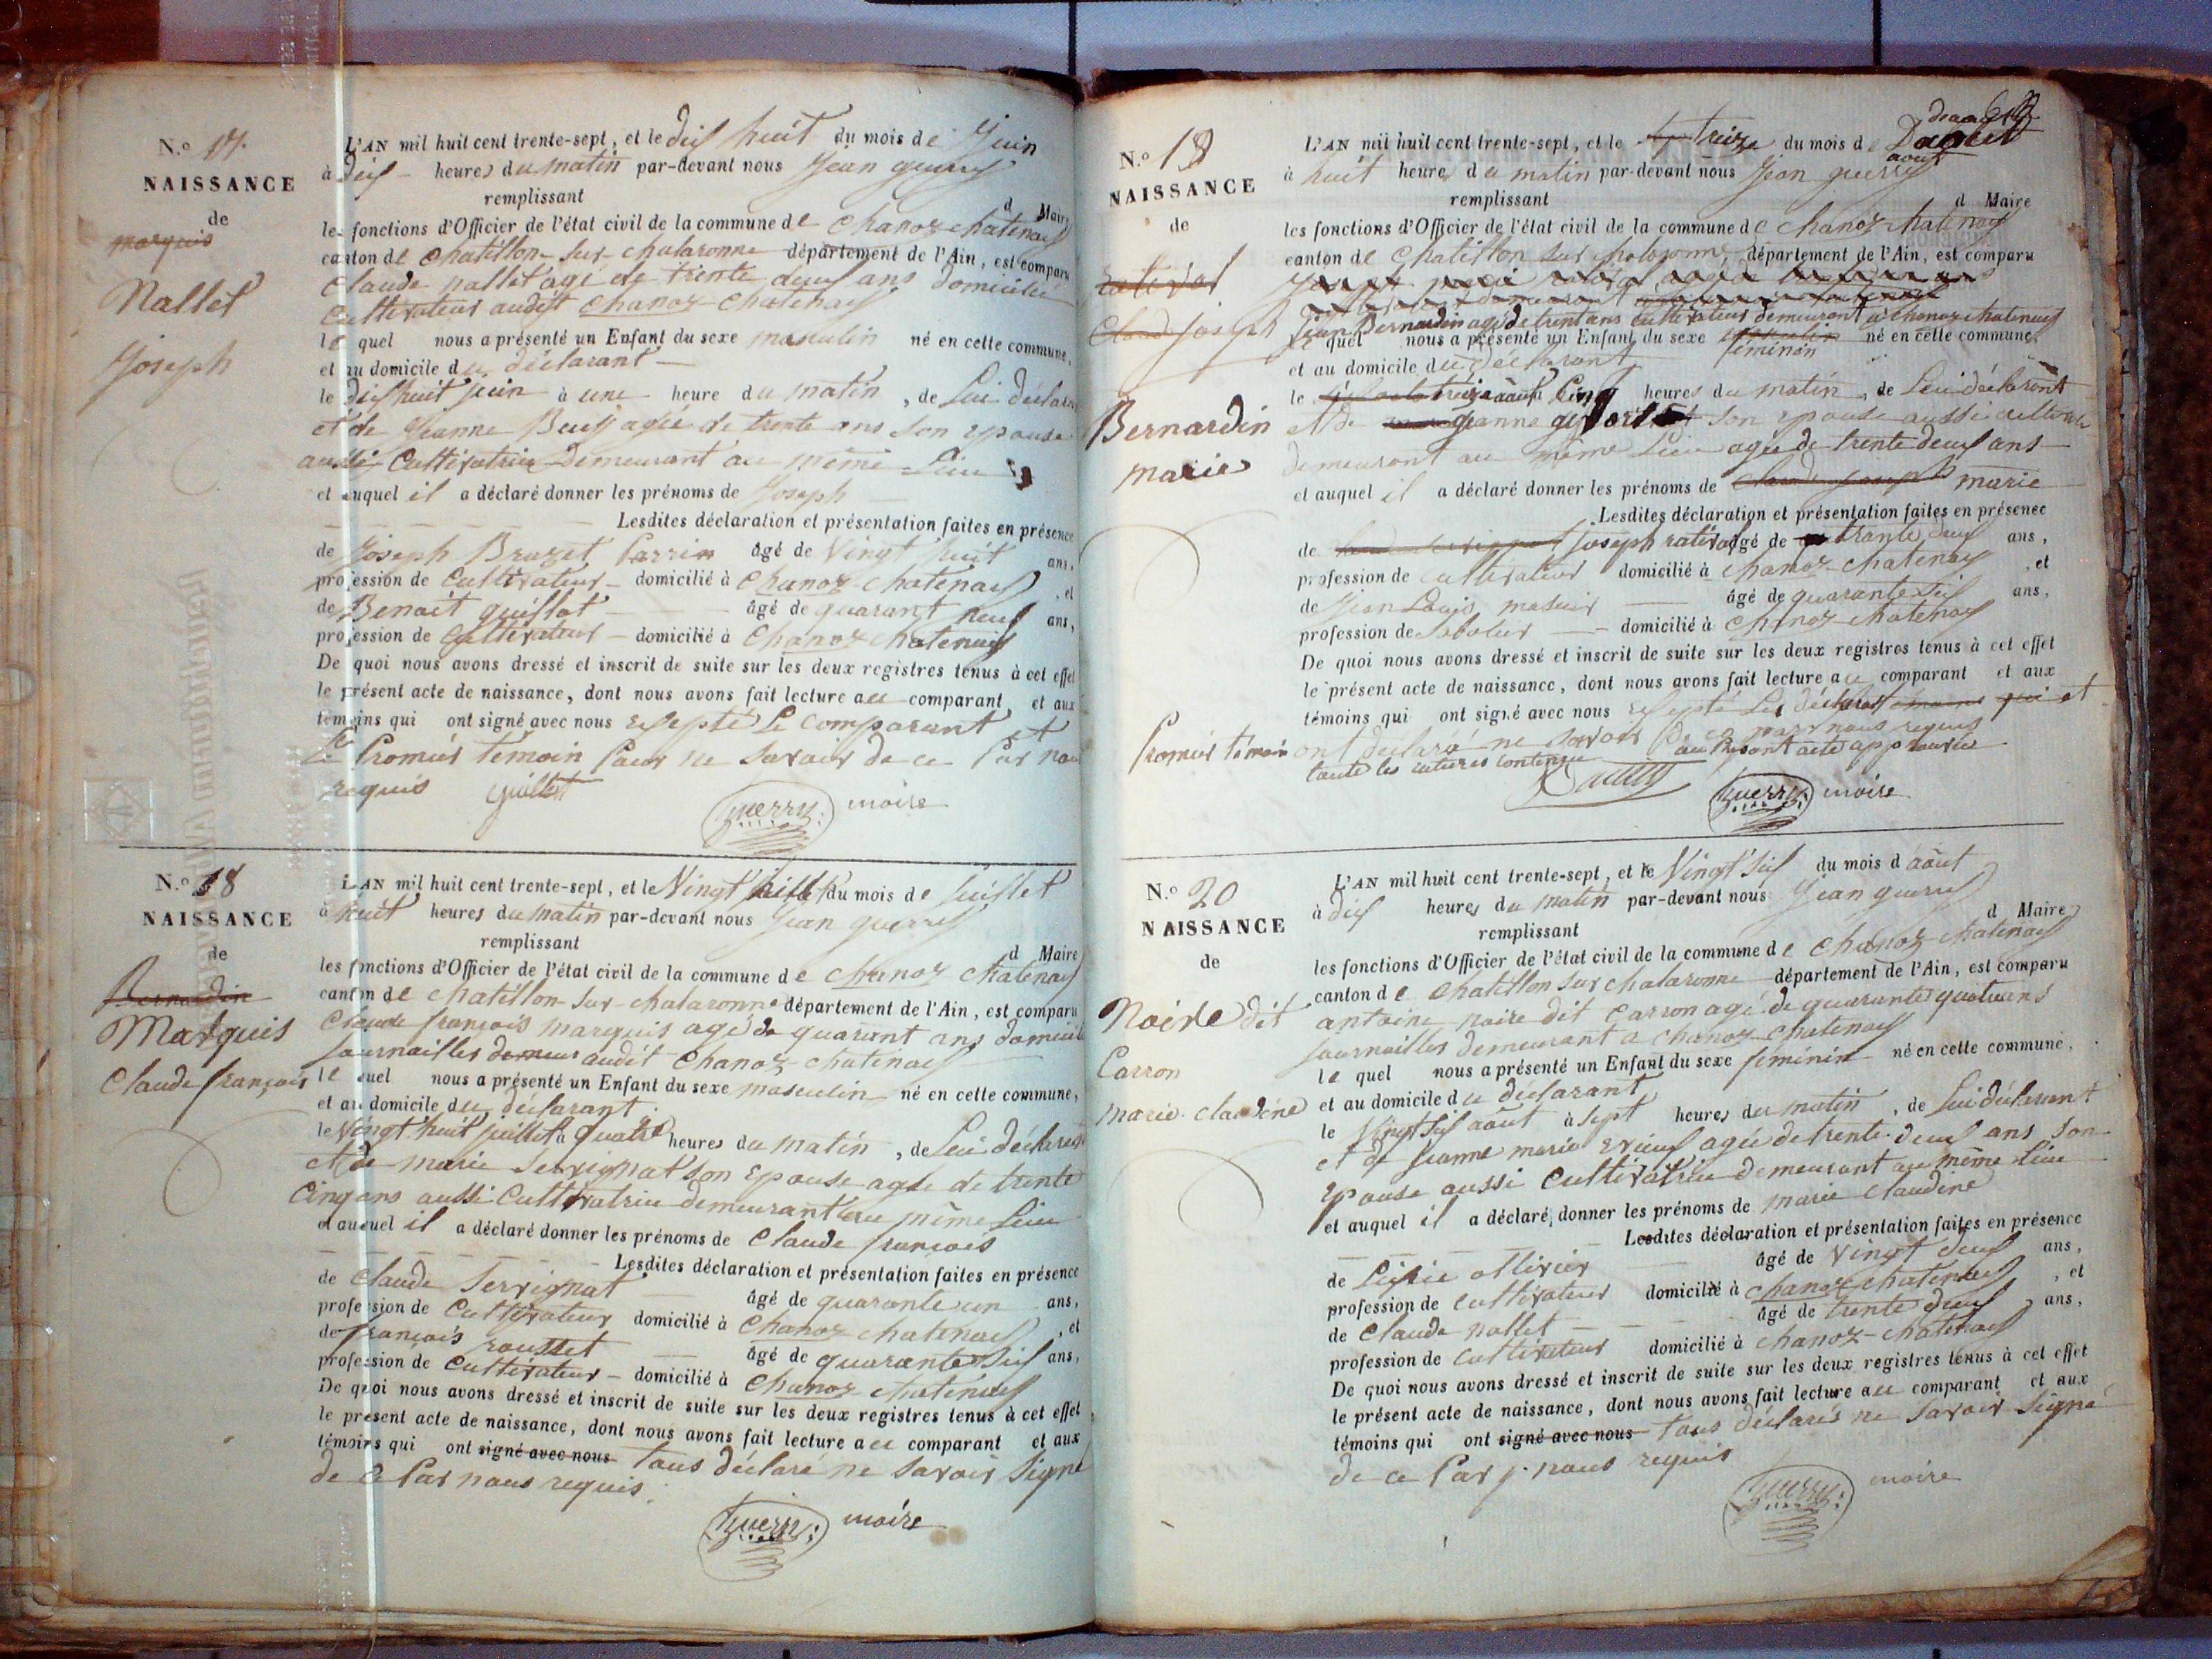 N.º 17.
NAISSANCE
de
marquis
Nallet
Joseph
L'AN mil huit cent trente-sept, et le dix huit du mois de Juin
à dix heures du matin par-devant nous Jean guerry
remplissant d Maire
les fonctions d'Officier de l'état civil de la commune de Chanoz chatenay
canton de Chatillon-sur-chalaronne département de l'Ain, est comparu
Claude nallet agé de trente deux ans domicilié
cultivateur audit Chanoz Chatenay
le quel nous a présenté un Enfant du sexe masculin né en cette commune,
et au domicile du déclarant
le dix huit juin à une heure du matin, de Lui déclarant
et de Jeanne agée de trente ans son epouse
aussi Cultivatrice demeurant au même Lieu
et auquel il a déclaré donner les prénoms de Joseph
Lesdites déclaration et présentation faites en présence
de Joseph Bruzet Perrin âgé de Vingt huit ans,
profession de Cultivateur domicilié à Chanoz-chatenay, et
de Benoit guillot âgé de quarant neuf ans,
profession de Cultivateur domicilié à Chanoz chatenay
De quoi nous avons dressé et inscrit de suite sur les deux registres tenus à cet effet
le présent acte de naissance, dont nous avons fait lecture au comparant et aux
témoins qui ont signé avec nous excepté Le comparant et
Le Promier temoin Pour ne Savoir de ce Par nous
requis guillot
guerry maire
N.º 18
NAISSANCE
de
Bernardin
Marquis
Claude françois
L'AN mil huit cent trente-sept, et le Vingt huit du mois de Juillet
à huit heures du matin par-devant nous Jean guerry
remplissant d Maire
les fonctions d'Officier de l'état civil de la commune de chanoz chatenay
canton de chatillon-sur-chalaronne département de l'Ain, est comparu
Claude françois marquis agé de quarant ans domicilié
Journaillier demeur audit Chanoz-chatenay
le quel nous a présenté un Enfant du sexe masculin né en cette commune,
et au domicile du déclarant
le Vingt huit juillet à quatre heures du matin, de Lui déclarant
et de marie Servignat son epouse agée de trente
Cinq ans aussi Cultivatrice demeurant au même Lieu
et auquel il a déclaré donner les prénoms de Claude françois
Lesdites déclaration et présentation faites en présence
de Claude Servignat âgé de quarante un ans,
profession de Cultivateur domicilié à Chanoz chatenay, et
de françois rousset âgé de quarante six ans,
profession de Cultivateur domicilié à Chanoz chatenay
De quoi nous avons dressé et inscrit de suite sur les deux registres tenus à cet effet
le présent acte de naissance, dont nous avons fait lecture au comparant et aux
témoins qui ont signé avec nous tous déclaré ne Savoir Signé
de ce Par nous requis
guerry maire
N.º 19
NAISSANCE
de
rativat
Claud Joseph
Bernardin
marie
L'AN mil huit cent trente-sept, et le treize du mois d août
à huit heures du matin par-devant nous Jean guerry
remplissant d Maire
les fonctions d'Officier de l'état civil de la commune de Chanoz chatenay
canton de Chatillon sur chalaronne, département de l'Ain, est comparu
Jean Bernardin agé de trent ans cultivateur demeurant a chanoz chatenay
le quel nous a présenté un Enfant du sexe masculin féminin né en cette commune,
et au domicile du déclarant
le treize août Cinq heures du matin, de Lui déclarant
et de Jeanne son epouse aussi
demeurant au même Lieu agée de trente deux ans
et auquel il a déclaré donner les prénoms de Claude Joseph marie
Lesdites déclaration et présentation faites en présence
de Joseph rativat âgé de trante deux ans,
profession de cultivateur domicilié à Chanoz-chatenay, et
de Jean Louis âgé de quarante six ans,
profession de Sabotier domicilié à Chanoz-chatenay
De quoi nous avons dressé et inscrit de suite sur les deux registres tenus à cet effet
le présent acte de naissance, dont nous avons fait lecture au comparant et aux
témoins qui ont signé avec nous excepté Le déclarant témoins qui et
Promier témoin ont déclaré ne savoir de ce par nous requis
toute les ratures contenue au present acte approuvée
guerry maire
N.º 20
NAISSANCE
de
Noire dit
Carron
marie claudine
L'AN mil huit cent trente-sept, et le Vingt Six du mois d août
à dix heures du matin par-devant nous Jean guerry
remplissant d Maire
les fonctions d'Officier de l'état civil de la commune de Chanoz-chatenay
canton de Chatillon sur chalaronne département de l'Ain, est comparu
antoine noire dit Carron agé de quarante quatre ans
Journaillier demeurant a chanoz-chatenay
le quel nous a présenté un Enfant du sexe féminin né en cette commune,
et au domicile du déclarant
le Vingt Six août à Sept heures du matin, de Lui déclarant
et de Jeanne marie agée de trente deux ans son
epouse aussi Cultivatrice demeurant au même Lieu
et auquel il a déclaré donner les prénoms de marie Claudine
Lesdites déclaration et présentation faites en présence
de ollivier âgé de Vingt deux ans,
profession de cultivateur domicilié à Chanoz chatenay, et
de Claude nallet âgé de trente deux ans,
profession de cultivateur domicilié à chanoz-chatenay
De quoi nous avons dressé et inscrit de suite sur les deux registres tenus à cet effet
le présent acte de naissance, dont nous avons fait lecture au comparant et aux
témoins qui ont signé avec nous tous déclarés ne Savoir Signé
de ce Par nous requis
guerry maire